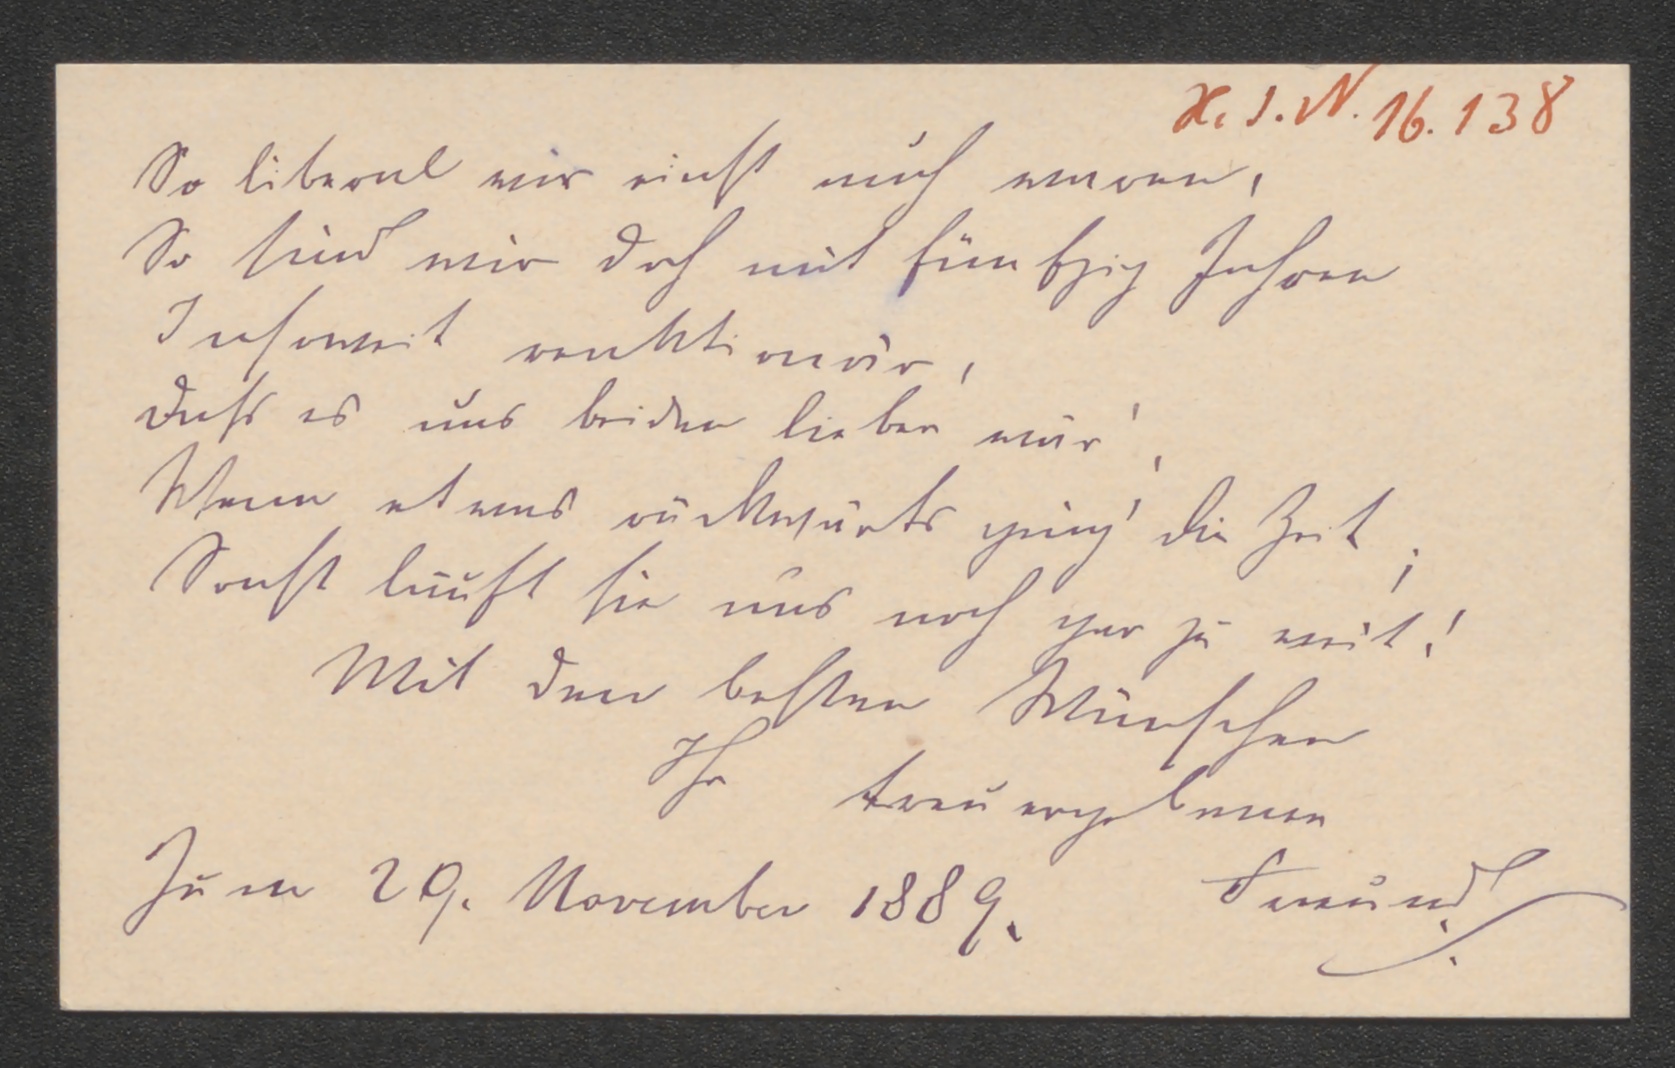 H. I. N. 16.138
So liberal wir einst auch waren,
So sind wir doch mit fünfzig Jahren
Insoweit reaktionär,
Dass es uns beiden lieber wär',
Wenn etwas rückwärts ging' die Zeit;
Sonst läuft sie uns noch gar zu weit!
Mit den besten Wünschen
Ihr treuergebener
Zum 29. November 1889. Freund.